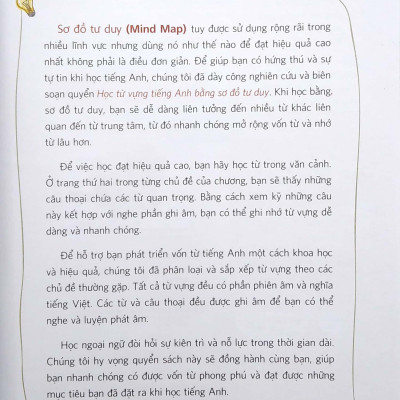 Sơ đồ tư duy (Mind Map) tuy được sử dụng rộng rãi trong
nhiều lĩnh vực nhưng dùng nó như thế nào để đạt hiệu quả cao
nhất không phải là điều đơn giản. Để giúp bạn có hứng thú và sự
tự tin khi học tiếng Anh, chúng tôi đã dày công nghiên cứu và biên
soạn quyển Học từ vựng tiếng Anh bằng sơ đồ tư duy. Khi học bằng
sơ đồ tư duy, bạn sẽ dễ dàng liên tưởng đến nhiều từ khác liên
quan đến từ trung tâm, từ đó nhanh chóng mở rộng vốn từ và nhớ
từ lâu hơn.
Để việc học đạt hiệu quả cao, bạn hãy học từ trong văn cảnh.
Ở trang thứ hai trong từng chủ đề của chương, bạn sẽ thấy những
câu thoại chứa các từ quan trọng. Bằng cách xem kỹ những câu
này kết hợp với nghe phần ghi âm, bạn có thể ghi nhớ từ vựng dễ
dàng và nhanh chóng.
Để hỗ trợ bạn phát triển vốn từ tiếng Anh một cách khoa học
và hiệu quả, chúng tôi đã phân loại và sắp xếp từ vựng theo các
chủ đề thường gặp. Tất cả từ vựng đều có phần phiên âm và nghĩa
tiếng Việt. Các từ và câu thoại đều được ghi âm để bạn có thể
nghe và luyện phát âm.
Học ngoại ngữ đòi hỏi sự kiên trì và nỗ lực trong thời gian dài.
Chúng tôi hy vọng quyển sách này sẽ đồng hành cùng bạn, giúp
bạn nhanh chóng có được vốn từ phong phú và đạt được những
mục tiêu bạn đã đặt ra khi học tiếng Anh.